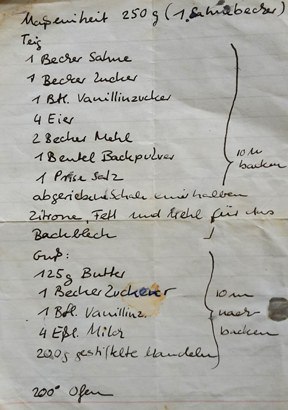 Maßeinheit 250 g (1 Sahnebecher)
Teig
1 Becher Sahne
1 Becher Zucker
1 Btl. Vanillinzucker
4 Eier
2 Becher Mehl
1 Beutel Backpulver
1 Prise Salz
abgeriebene Schale einer halben
Zitrone, Fett und Mehl für das
Backblech
10 m
backen
Guß:
125g Butter
1 Becher Zucker
1 Btl. Vanillinz.
4 Eßl. Milch
200g gestiftelte Mandeln
10 m
nach
backen
200° Ofen